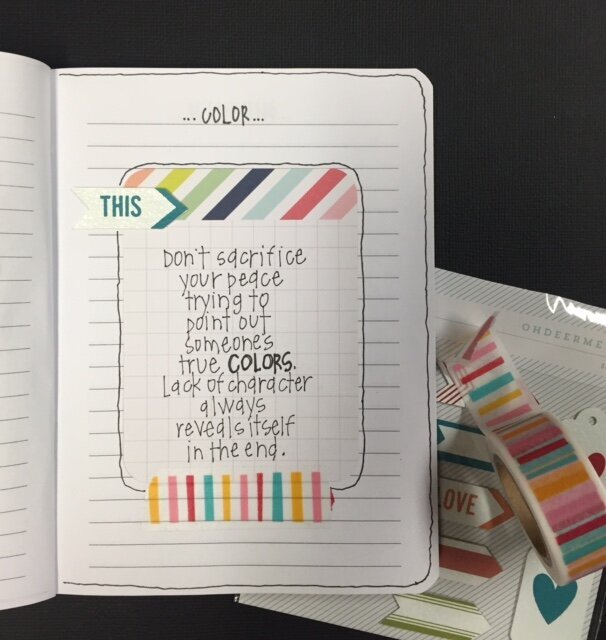 ...COLOR...
THIS
Don't sacrifice
your peace
trying to
point out
someone's
true COLORS.
Lack of character
always
reveals itself
in the end.
OHDEERME
LOVE